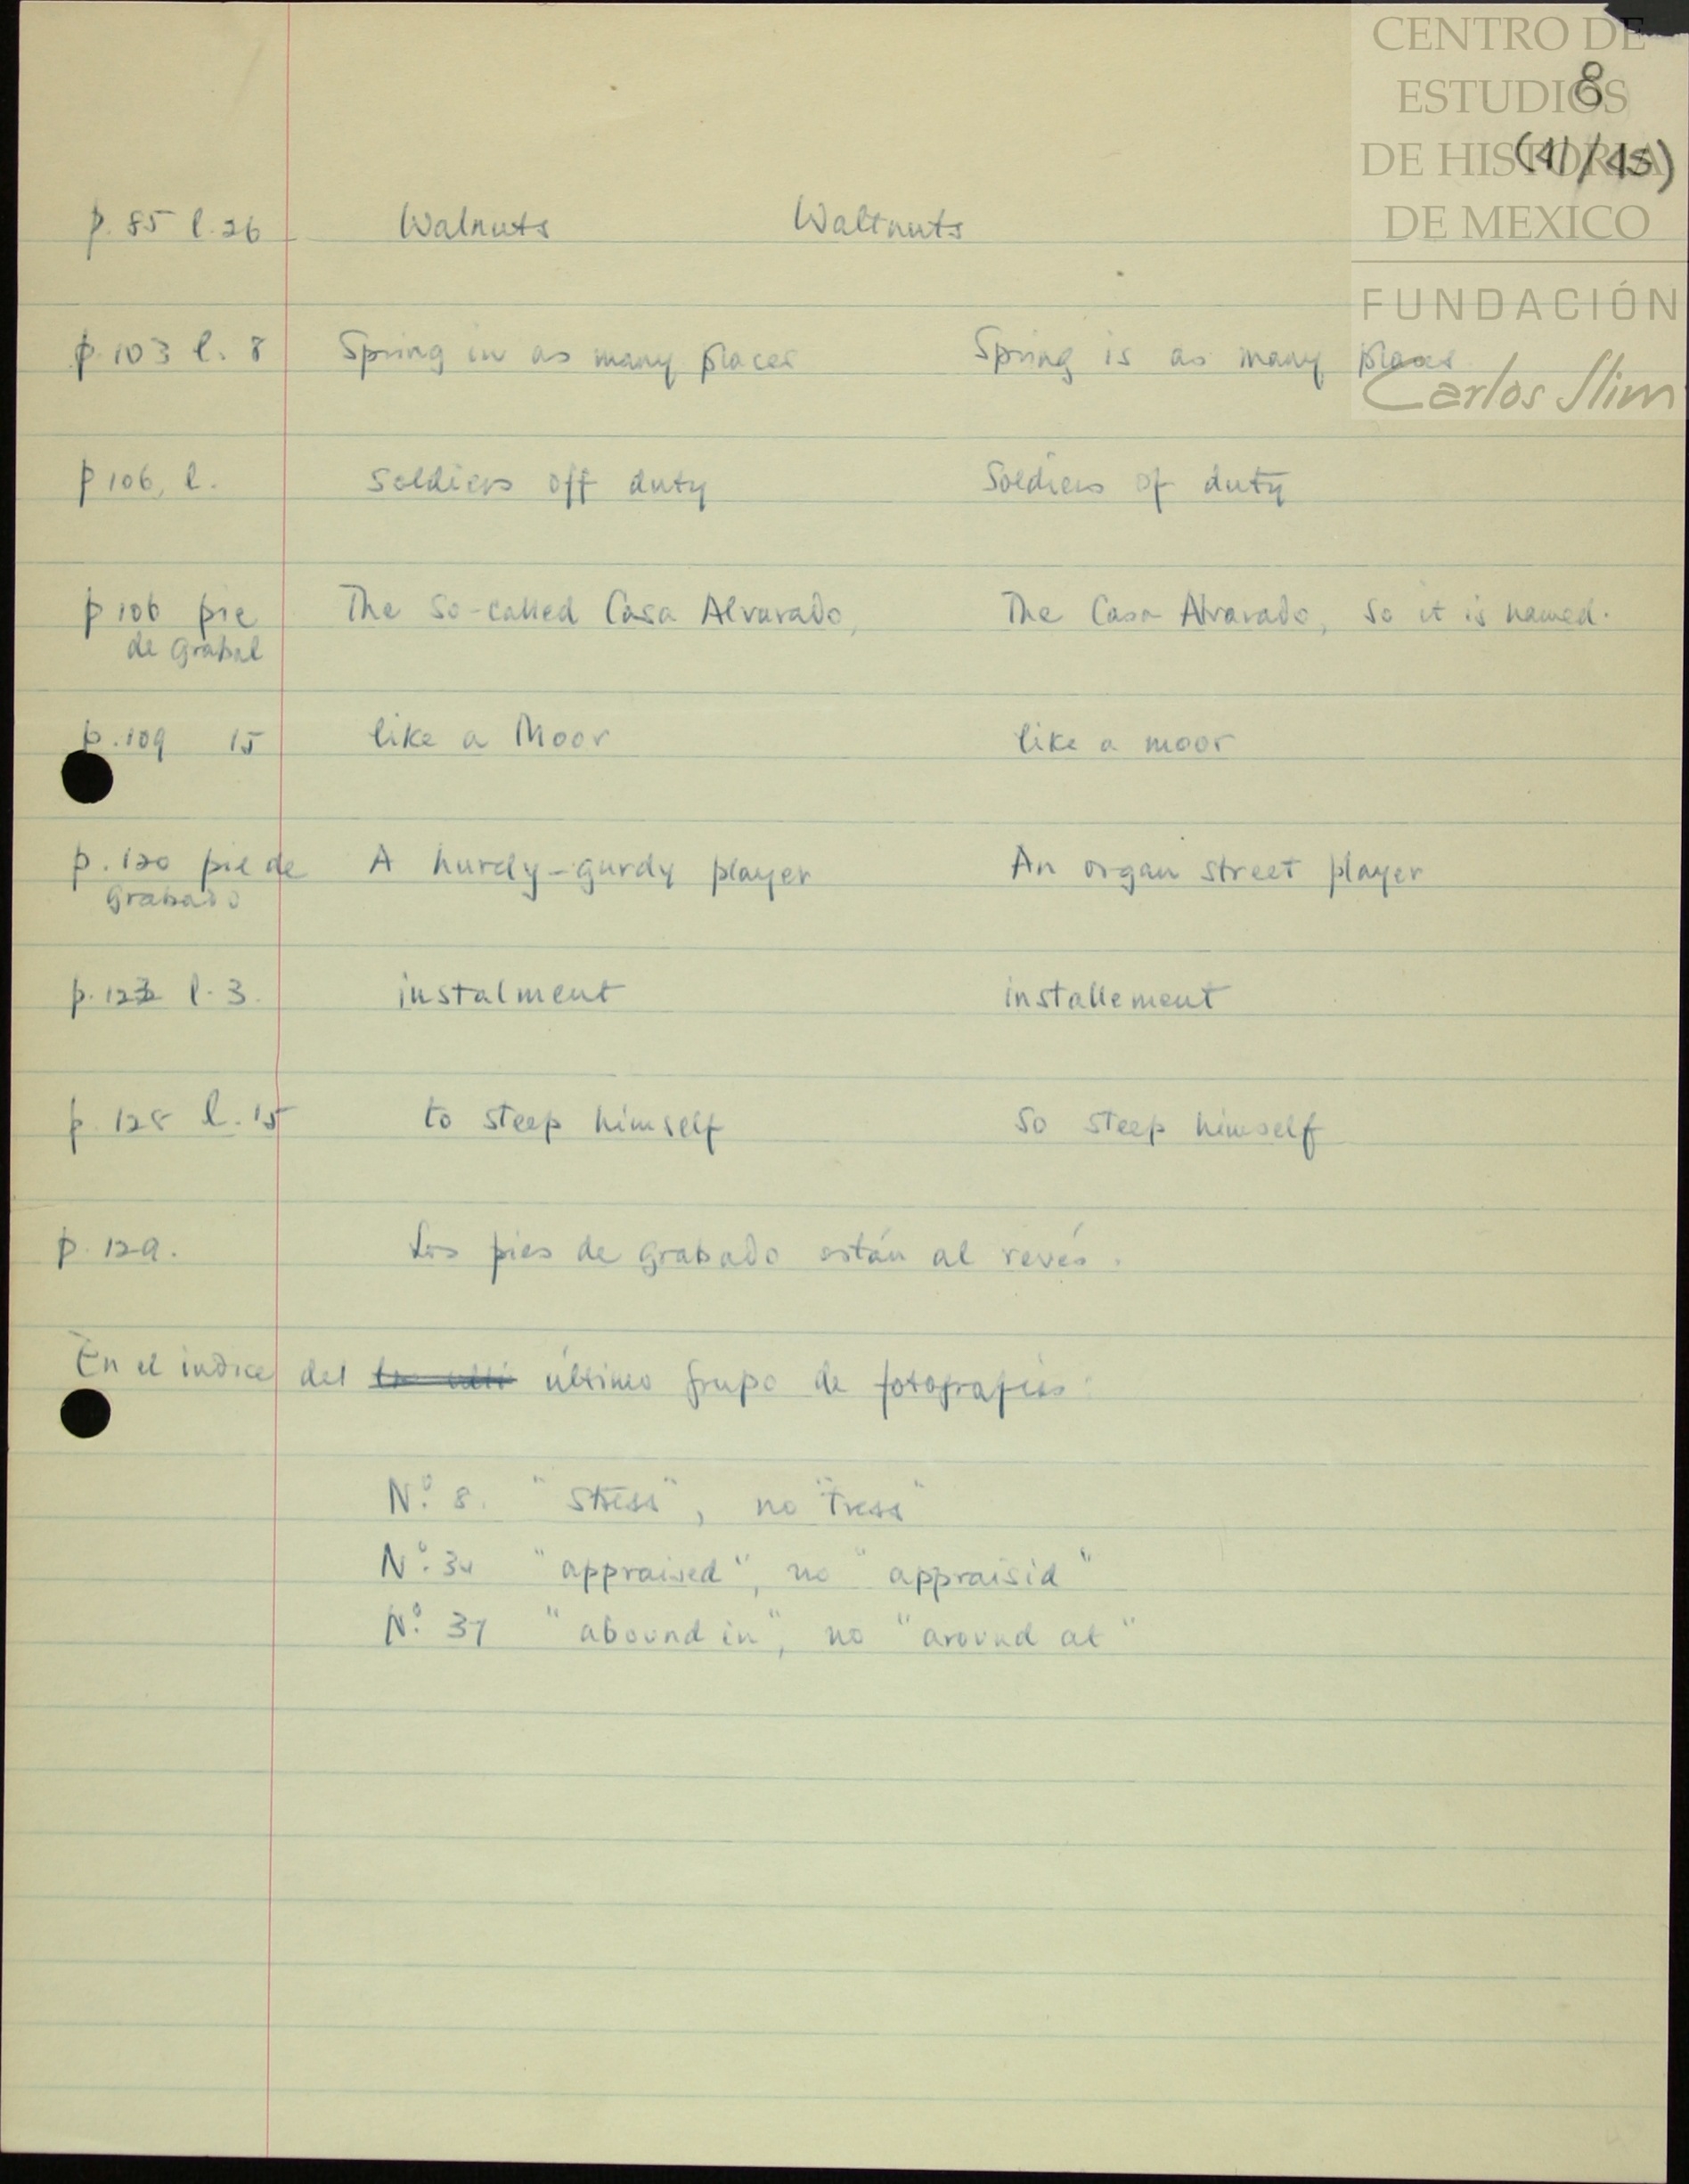 CENTRO DE
ESTUDIOS
DE HISTORIA
DE MEXICO
FUNDACIÓN
Carlos Slim
8
(11/15)
p. 85 l. 26 Walnuts Waltnuts
p. 103 l. 8 Spring in as many places Spring is as many places
p 106, l. Soldiers off duty Soldiers of duty
p 106 pie The so-called Casa Alvarado, The Casa Alvarado, so it is named.
de Grabad
p. 109 15 like a Moor like a moor
p. 120 pie de A hurdy-gurdy player An organ street player
Grabado
p. 123 l. 3. instalment installement
p. 128 l. 15 to steep himself so steep himself
p. 129. Los pies de grabado están al revés.
En el indice del último grupo de fotografías:
N.º 8. "stress", no "tress"
N.º 34 "appraised", no "appraisid"
N.º 37 "abound in", no "around at"